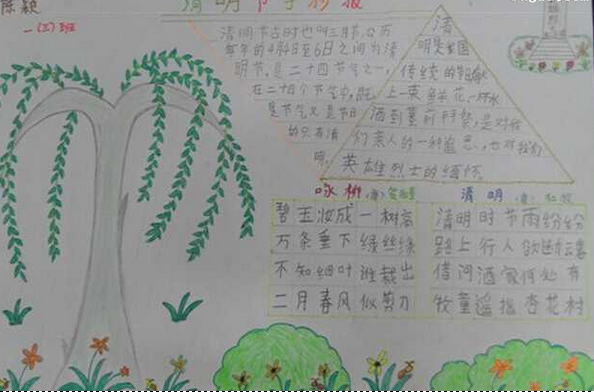 陈颖
清明节手抄报
一(三)班
清明节古时也叫三月节,公历
每年的4月4日至6日之间为清
明节,是二十四节气之一,
在二十四个节气中,既
是节气又是节日
的只有清
明。
清
明是我国
传统的节日,献
上一束鲜花,一杯水
酒到墓前拜祭,是对我
们亲人的一种追思,也对我们
英雄烈士的缅怀
咏柳(唐)贺知章
碧玉妆成一树高
万条垂下绿丝绦
不知细叶谁裁出
二月春风似剪刀
清明(唐)杜牧
清明时节雨纷纷
路上行人欲断云魂
借问酒家何处有
牧童遥指杏花村